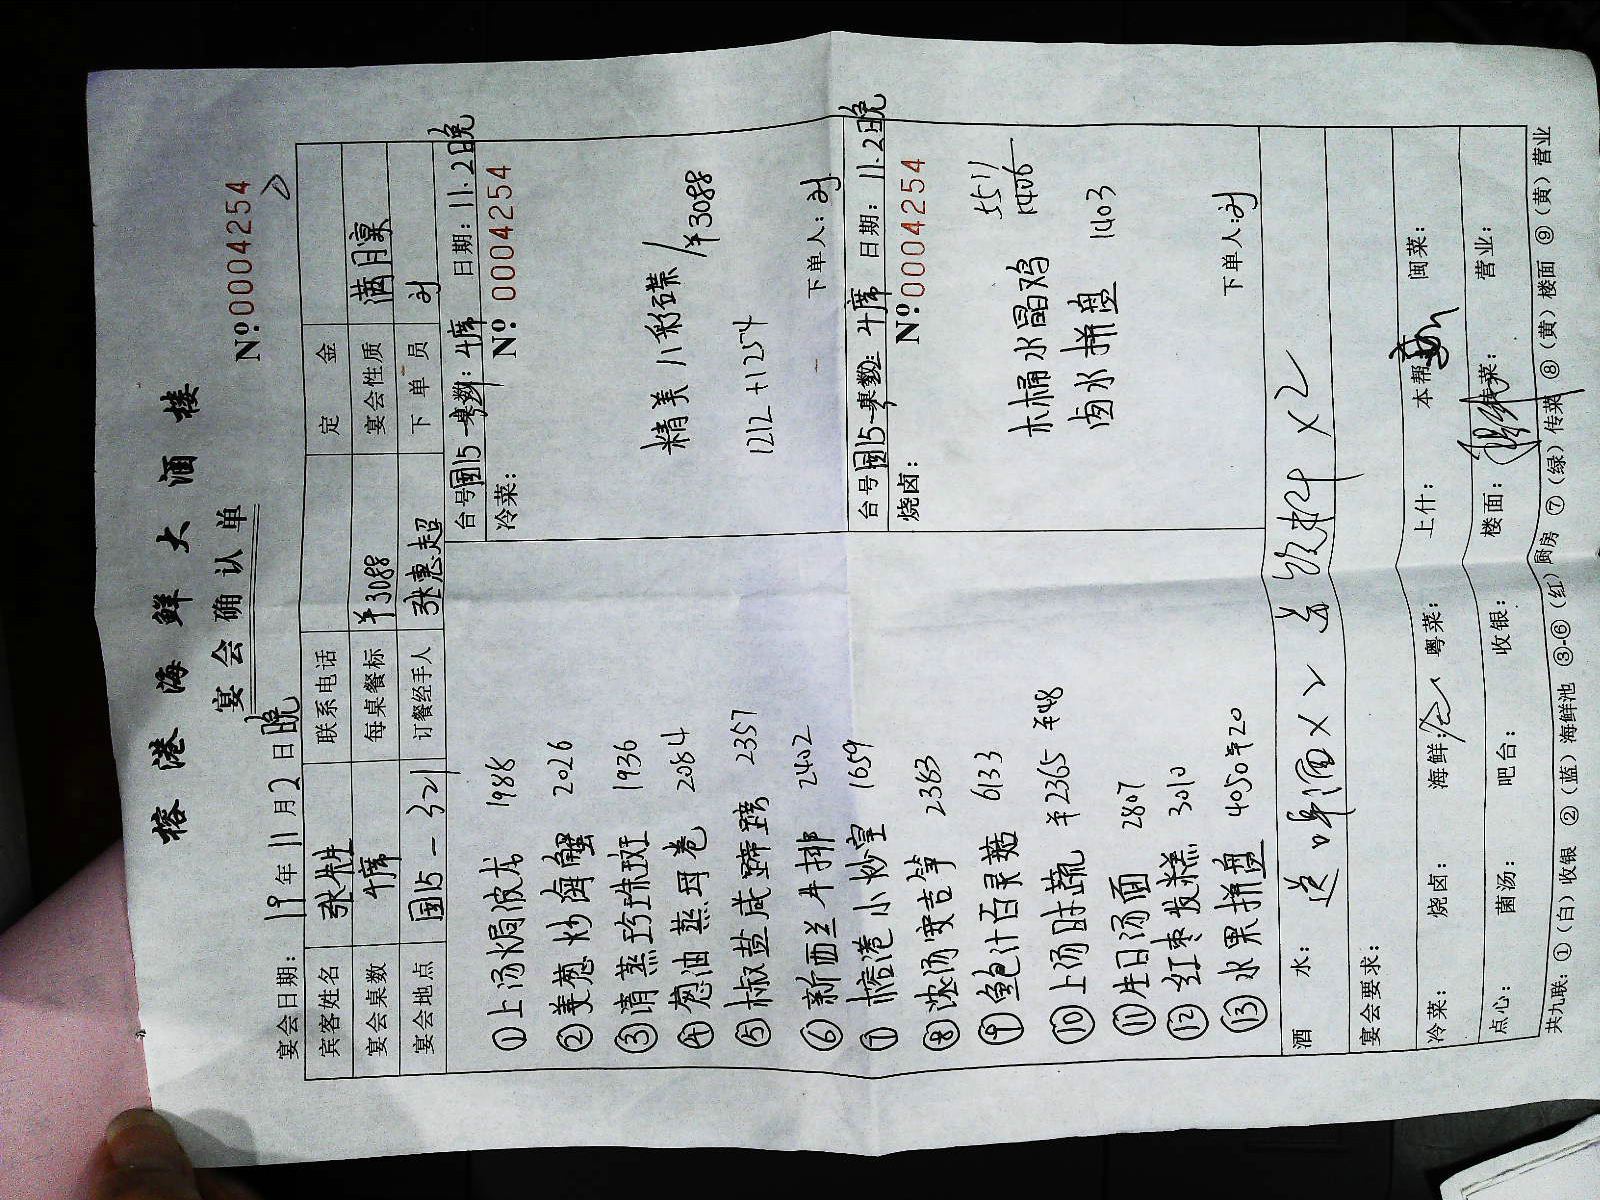 榕港海鲜大酒楼
宴会确认单
宴会日期: 19年11月2日晚 №0004254
宾客姓名 张先生 联系电话 定金
宴会桌数 4席 每桌餐标 ¥3088 宴会性质 满月宴
宴会地点 国15-321 订餐经手人 张惠超 下单员 刘
台号国15 桌数: 4席 日期: 11.2晚
冷菜: №0004254
精美八彩碟 /¥3088
1212+12574
下单人: 刘
台号国15 桌数: 4席 日期: 11.2晚
烧卤: №0004254
5511
木桶水晶鸡 1406
卤水拼盘 1403
下单人: 刘
①上汤焗波龙 1988
②姜葱炒海蟹 2026
③清蒸珍珠斑 1936
④葱油蒸 卷 2084
⑤椒盐咸蹄膀 2357
⑥新西兰牛排 2402
⑦榕港小炒皇 1659
⑧浓汤安吉笋 2383
⑨鲍汁百灵菇 6133
⑩上汤时蔬 ¥2365 ¥48
⑪生日汤面 2807
⑫红枣发糕 3010
⑬水果拼盘 4050 ¥20
酒水: 送啤酒×2 送饮料×2
宴会要求:
冷菜: 烧卤: 海鲜: 粤菜: 上什: 本帮: 闽菜:
点心: 菌汤: 吧台: 收银: 楼面: 传菜: 营业:
共九联: ①(白)收银 ②(蓝)海鲜池 ③-⑥(红)厨房 ⑦(绿)传菜 ⑧(黄)楼面 ⑨(黄)营业